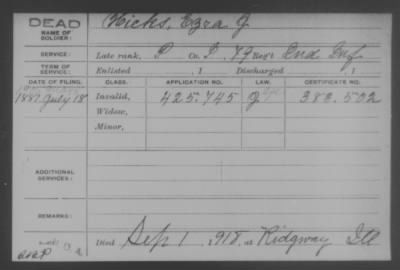 DEAD
NAME OF SOLDIER: Hicks, Ezra J.
SERVICE: Late rank, P Co. I, 89 Reg't Ind Inf
TERM OF SERVICE: Enlisted , 1 Discharged , 1
DATE OF FILING. CLASS. APPLICATION NO. LAW. CERTIFICATE NO.
1887 July 18 Invalid, 425.745 383.502
Widow,
Minor,
ADDITIONAL SERVICES:
REMARKS:
Died Sep 1, 1918, at Ridgway Ill